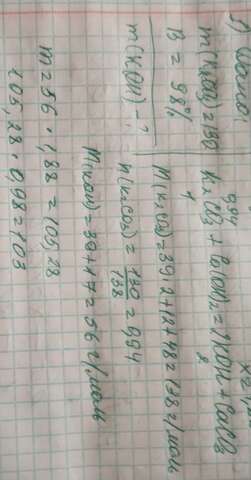 3) Дано:
m(K₂CO₃)=130
B = 98%
m(KOH) - ?
0,94 x
K₂CO₃ + Ca(OH)₂ = 2KOH + CaCO₃
1 2
M(K₂CO₃)=39·2+12+48=138 г/моль
n(K₂CO₃) = 130/138 = 0,94
M(KOH)=39+17=56 г/моль
m=56 · 1,88 = 105,28
105,28 · 0,98=103